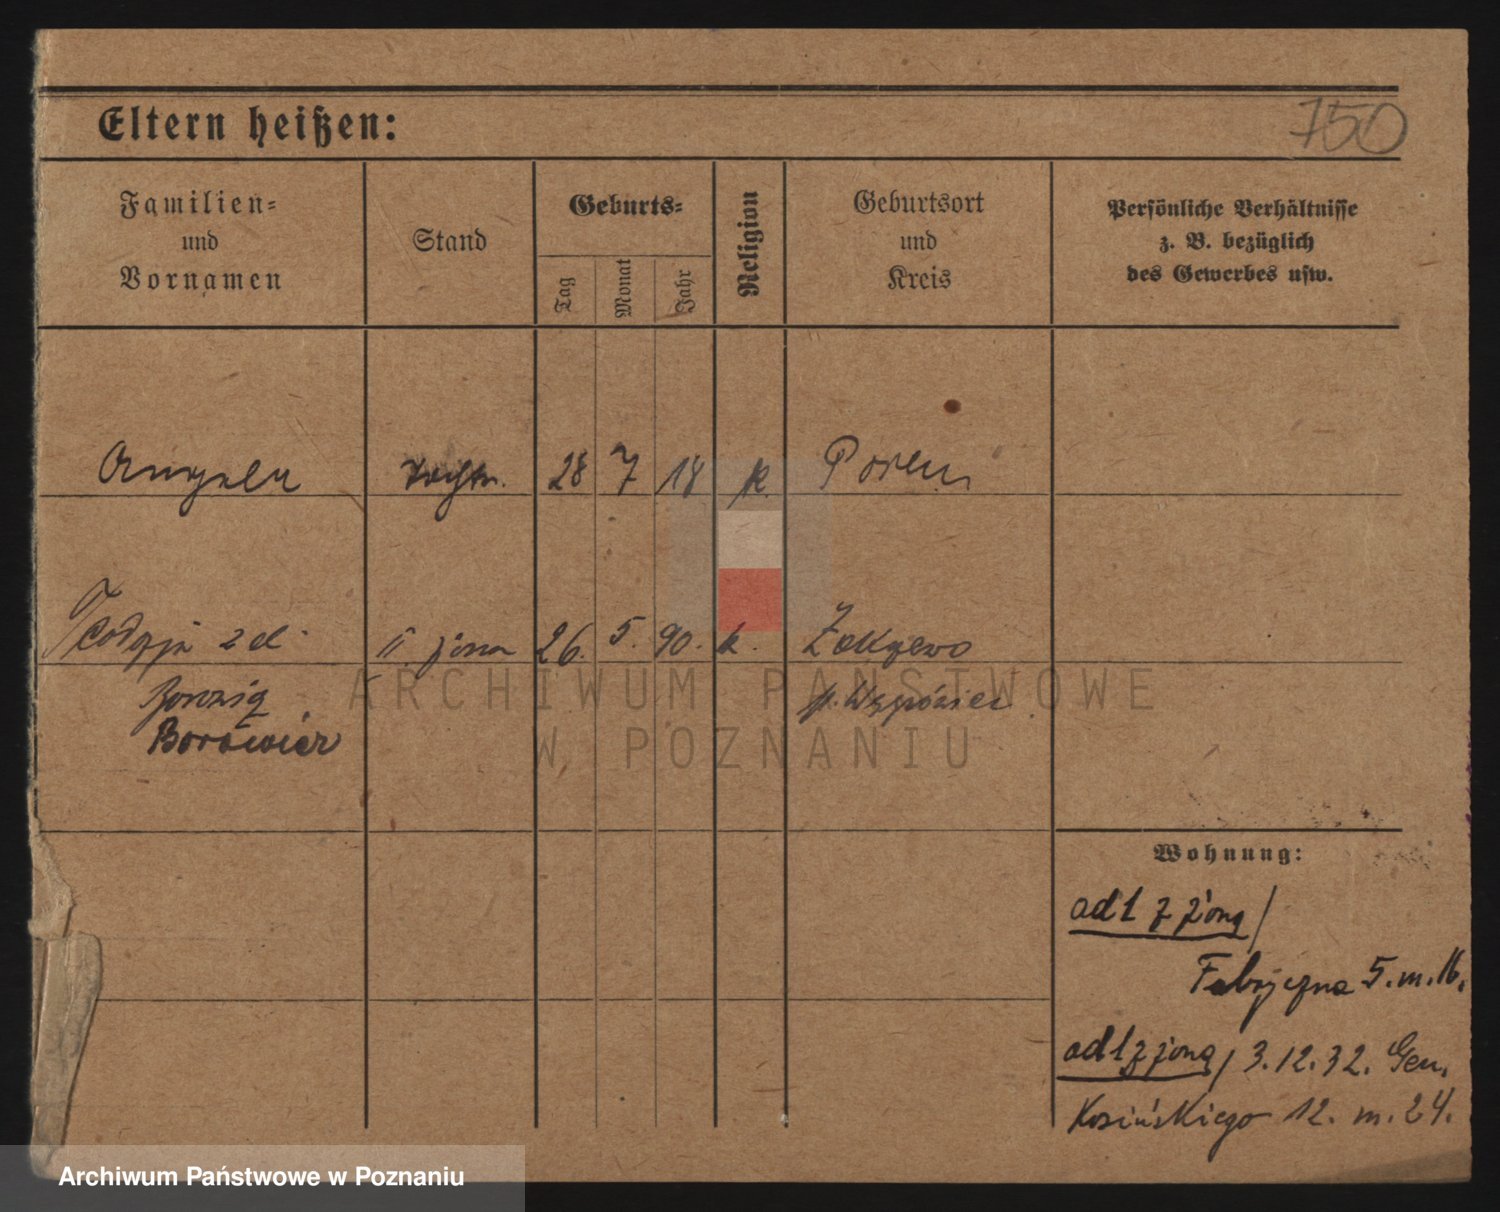 750
Eltern heißen:
Familien-
und
Vornamen
Stand
Geburts-
Tag
Monat
Jahr
Religion
Geburtsort
und
Kreis
Persönliche Verhältnisse
z. B. bezüglich
des Gewerbes usw.
Angela
Tocht.
28 7 18 k.
Posen
II żona 26. 5. 90. k. Zakrzewo
Borowicz
ARCHIWUM PAŃSTWOWE
W POZNANIU
Wohnung:
ad 1 z żoną /
Fabryczna 5. m. 16.
ad 1 z żoną / 3.12.32. Gen.
Kosińskiego 12. m. 24.
Archiwum Państwowe w Poznaniu